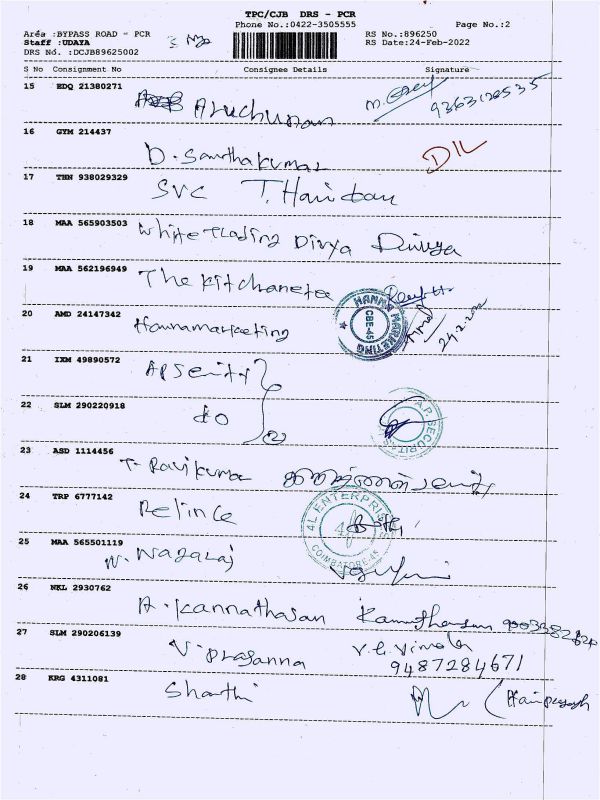 TPC/CJB DRS - PCR
Area :BYPASS ROAD - PCR Phone No.:0422-3505555 Page No.:2
Staff :UDAYA RS No.:896250
DRS No. :DCJB89625002 RS Date:24-Feb-2022
S No Consignment No Consignee Details Signature
15 EDQ 21380271
Aruchunan 9363120535
16 GYM 214437
D. Santhakumar DIL
17 THN 938029329
SVC T. Hari
18 MAA 565903503
White Trading Divya Divya
19 MAA 562196949
The Kitchanetee
20 AMD 24147342
Hannamarketing
HANNA MARKETING
CBE-45
24.2.2022
21 IXM 49890572
AP
22 SLM 290220918
do
A.P. SECURITAS
23 ASD 1114456
T. Ravikumar
24 TRP 6777142
Relince
4L ENTERPRISES
COIMBATORE-45
25 MAA 565501119
N. Nagaraj
26 NKL 2930762
A. Kannathasan
27 SLM 290206139
V Prasanna V.G. Vimala
9487284671
28 KRG 4311081
Shanthi